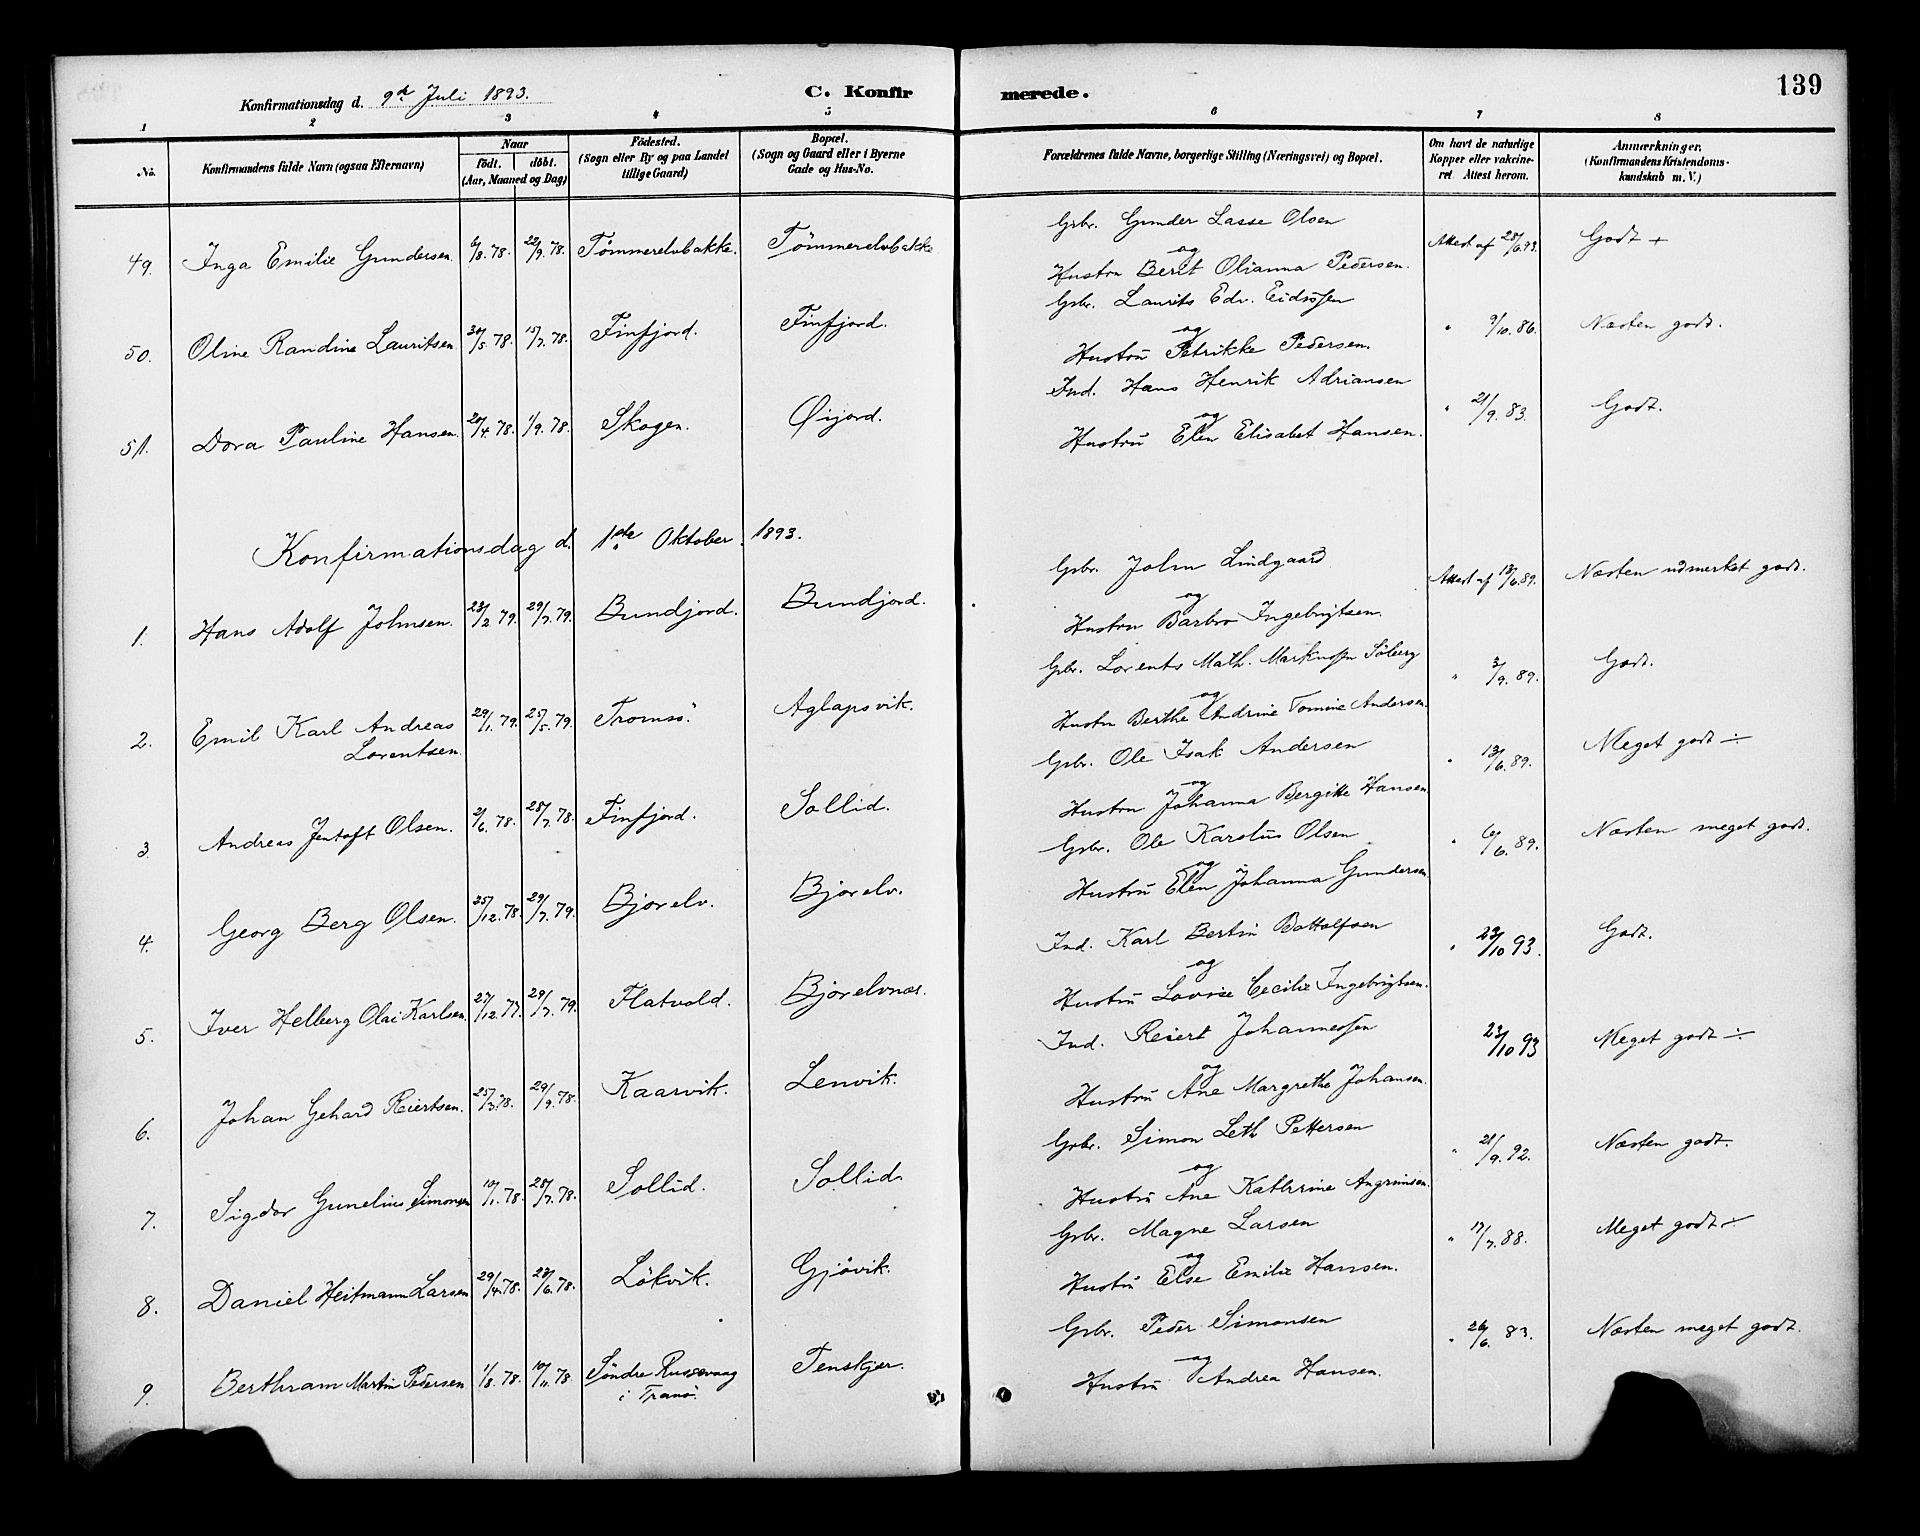 139
Konfirmationsdag d. 9de Juli 1893.
C. Konfirmerede.
1 2 3 4 5 6 7 8
No.
Konfirmandens fulde Navn (ogsaa Efternavn)
Naar
födt. döbt.
(Aar, Maaned og Dag)
Födested.
(Sogn eller By og paa Landet
tillige Gaard)
Bopæl.
(Sogn og Gaard eller i Byerne
Gade og Hus-No.
Forældrenes fulde Navne, borgerlige Stilling (Næringsvei) og Bopæl.
Om havt de naturlige
Kopper eller vakcine-
ret Attest herom.
Anmærkninger.
(Konfirmandens Kristendoms-
kundskab m. V.)
49. Inga Emilie Gundersen. 6/8. 78. 22/9. 78. Tømmerelvbakke. Tømmerelvbakke Gbr. Gunder Lasse Olsen
og
Hustru Berit Olianna Pedersen. Attest af 28/6.93. Godt +
50. Oline Randine Lauritsen 30/5. 78. 15/7. 78. Finfjord. Finfjord. Gbr. Laurits Edv. Eidissen
og
Hustru Petrikke Pedersen. " 9/10. 86. Næsten godt.
51. Dora Pauline Hansen. 20/4. 78. 1/9. 78. Skogen. Øijord. Ind. Hans Henrik Adriansen
og
Hustru Elen Elisabet Hansen. " 21/9. 83. Godt.
Konfirmationsdag d. 1ste Oktober 1893.
1. Hans Adolf Johnsen. 23/2. 79. 29/7. 79. Bundjord. Bundjord. Gbr. John Lindgaard
og
Hustru Barbro Ingebrigtsen. Attest af 13/6. 89. Næsten udmerket godt.
2. Emil Karl Andreas
Lorentsen. 29/1. 79. 25/5. 79. Tromsö. Aglapsvik. Gbr. Lorents Math. Markussen Söberg
og
Hustru Berthe Andrine Tomine Andersen. " 3/9. 89. Godt.
3 Andreas Jentoft Olsen. 2/6. 78. 28/7. 78. Finfjord. Sollid. Gbr. Ole Isak Andersen
og
Hustru Johanna Bergitte Hansen " 13/6. 89. Meget godt ÷
4. Georg Berg Olsen. 25/12. 78. 29/7. 79. Bjorelv. Bjorelv. Gbr. Ole Karolius Olsen
og
Hustru Elen Johanna Gundersen " 6/6. 89. Næsten meget godt.
5. Iver Helberg Olai Karlsen. 27/12. 77. 29/7. 79. Flatvold. Bjorelvnes. Ind. Karl Bertin Bottolfsen
og
Hustru Lovise Cecilie Ingebrigtsen. " 23/10 93. Godt.
6. Johan Gehard Reiertsen. 25/3. 78. 29/9. 78. Kaarvik. Lenvik. Ind. Reiert Johannessen
og
Hustru Ane Margrethe Johansen. 23/10 93 Meget godt ÷
7. Sigdor Gunelius Simonsen 10/1. 78. 28/7. 78. Sollid. Sollid. Gbr. Simon Leth Pettersen
og
Hustru Ane Kathrine Angrimsen. " 21/9. 92. Næsten godt.
8. Daniel Heitmann Larsen 29/4. 78. 23/6. 78. Lökvik. Gjövik. Gbr. Magne Larsen
og
Hustru Else Emilie Hansen. " 17/7. 88. Meget godt ÷
9. Berthram Martin Pedersen 1/8. 78. 10/11. 78 Söndre Russevaag
i Tranö. Tenskjer. Gbr. Peder Simonsen
og
Hustru Andrea Hansen. " 26/6. 83. Næsten meget godt.